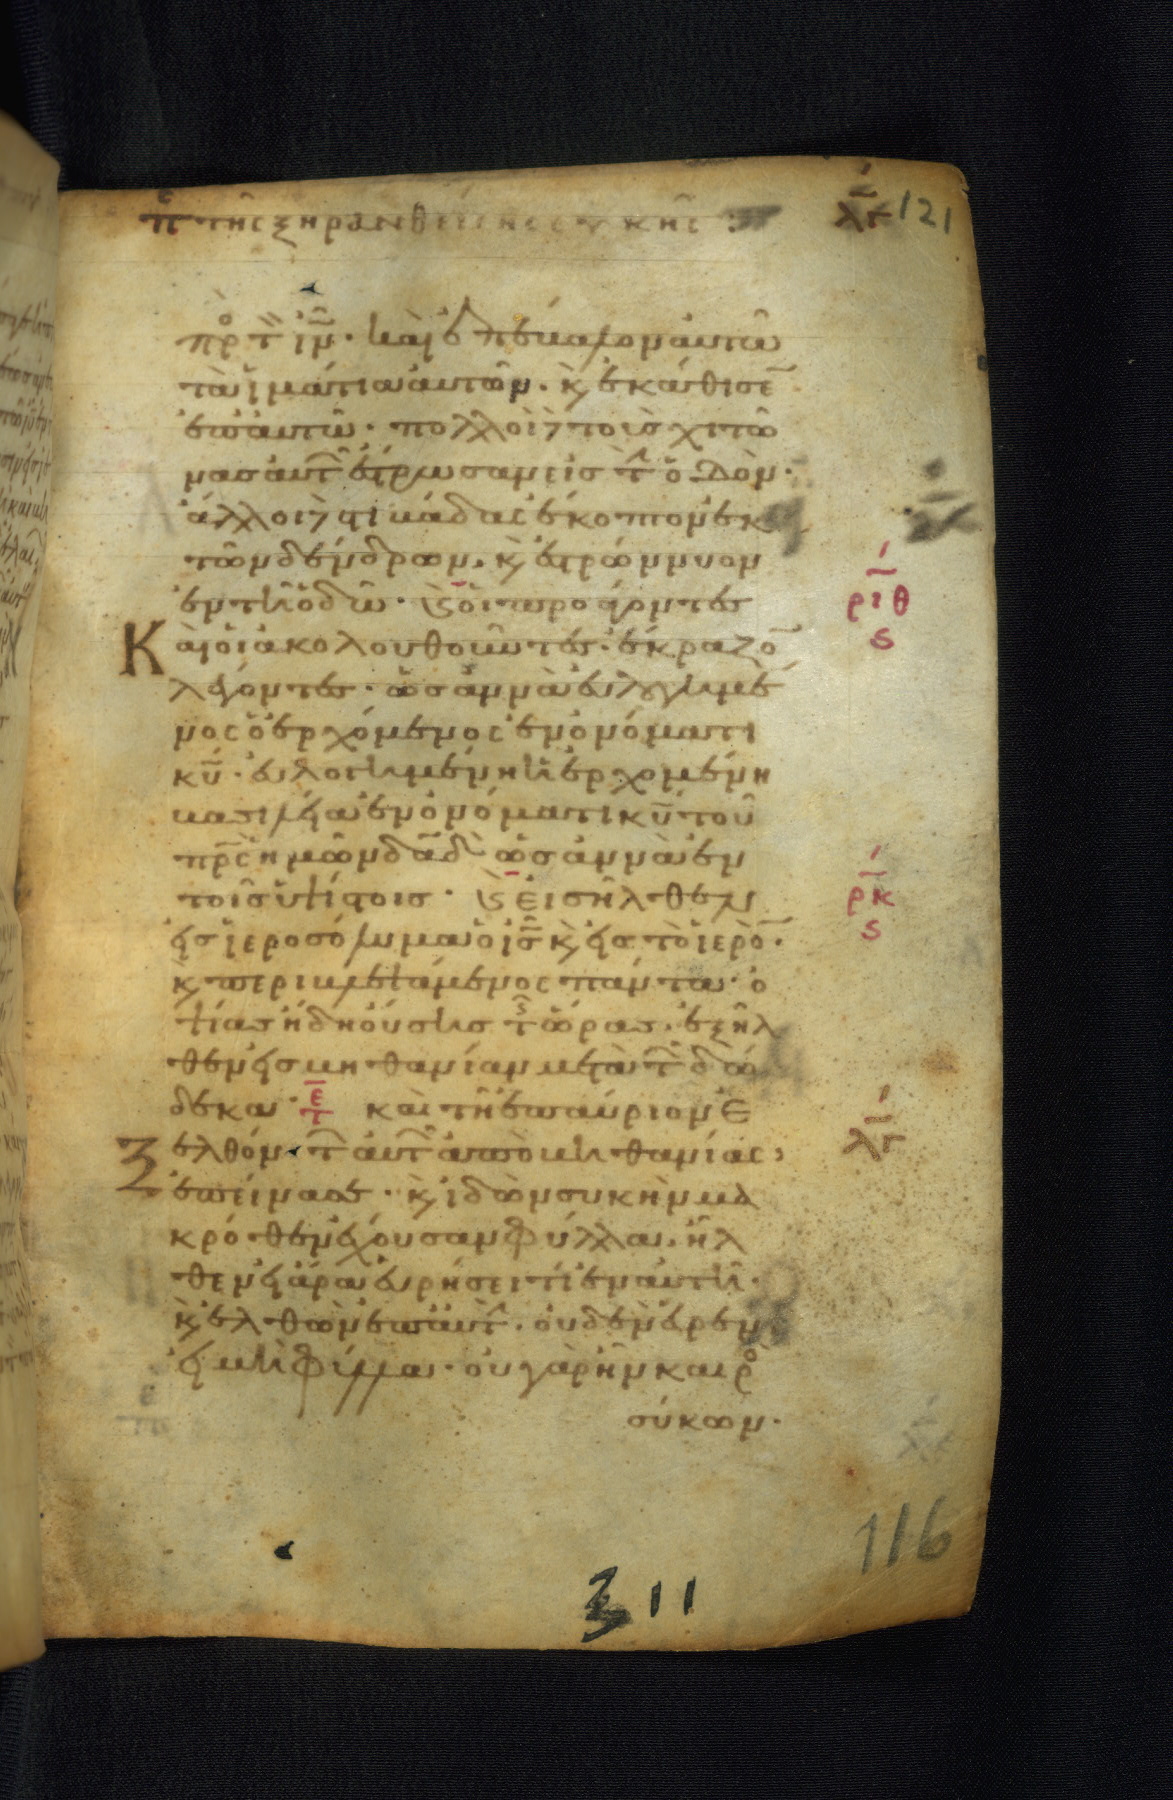 πε τῆς ξηρανθείσης συκῆς : λγ 121
πρὸς τὸν ιν̅· καὶ ἐπέβαλον αὐτῶ
τὰ ἱμάτια αὐτῶν· κ̀ ἐκάθισεν
ἐπ' αὐτῶ· πολλοὶ δὲ τοὺς χιτῶ
νας αὐτῶν ἔστρωσαν εἰς τὴν ὁδόν·
ἄλλοι δὲ στιβάδας ἔκοπτον ἐκ
τῶν δένδρων, κ̀ ἐστρώννυον
ἐν τῆ ὁδῶ· κ̀ οἱ προάγοντες
ριθ
ς
Καὶ οἱ ἀκολουθοῦντες· ἔκραζον
λέγοντες· ὡσαννὰ εὐλογημέ
νος ὁ ἐρχόμενος ἐν ὀνόματι
κυ̅· εὐλογημένη ἡ ἐρχομένη
βασιλεία ἐν ὀνόματι κυ̅ τοῦ
πρς̅ ἡμῶν δαδ̅ ὡσαννὰ ἐν
τοῖς ὑψίστοις· κ̀ εἰσῆλθεν
ρκ
ς
εἰς ἱεροσόλυμα ὁ ις̅ κ̀ εἰς τὸ ἱερόν·
κ̀ περιβλεψάμενος πάντα· ὀ
ψίας ἤδη οὔσης τῆς ὥρας· ἐξῆλ
θεν εἰς βηθανίαν μετὰ τῶν δώ
δεκα· τε καὶ τῆ ἐπαύριον ἐ
ξελθόντων αὐτῶν ἀπὸ βηθανίας,
λγ
ἐπείνασε· κ̀ ἰδὼν συκῆν μα
κρόθεν ἔχουσαν φύλλα, ἦλ
θεν εἰ ἄρα εὑρήσει τὶ ἐν αὐτῆ·
κ̀ ἐλθὼν ἐπ' αὐτὴν· οὐδὲν εὗρεν
εἰ μὴ φύλλα· οὐ γὰρ ἦν καιρὸς
σύκων·
116
311